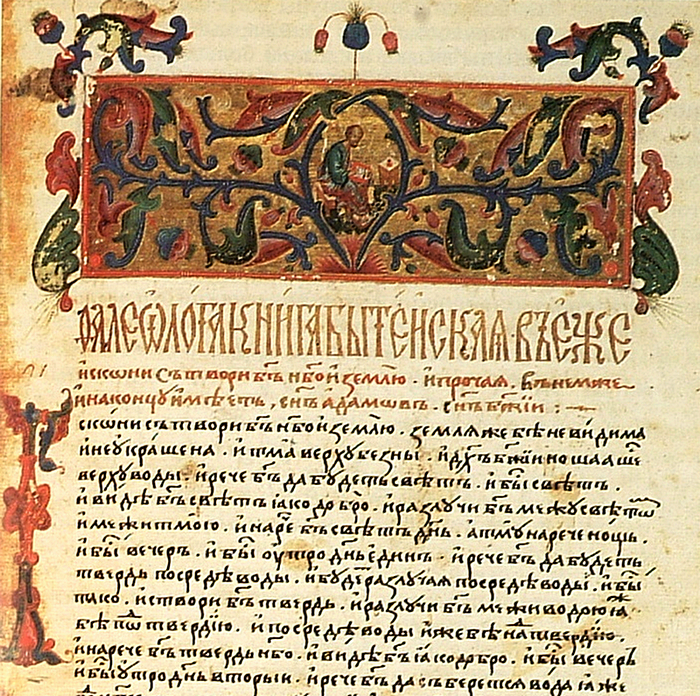 ѲАЛЕѠЛОГА КНИГА БЫТЕИСКАЯ ВЪ ЕЖЕ
искони сътвори бг҃ъ нб҃о и землю · и прочая · въ немже
и на концу имѣеть, сн҃ъ адамовъ · сн҃ъ бж҃іи :—
скони сътвори бг҃ъ нб҃о и землю · земля же бѣ невидима
и неукрашена · и тма верху безны · и дх҃ъ бж҃іи ношааше
верху воды · и рече бг҃ъ да будеть свѣтъ · и бы свѣтъ ·
и видѣ бг҃ъ свѣтъ іако добро · и разлучи бг҃ъ межу свѣтѡ
и межи тмою · и нарє бг҃ъ свѣтъ дн҃ь · а тму нарече нощь ·
и бы вечеръ · и бы оутро дн҃ь единъ · и рече бг҃ъ да будеть
твердь посредѣ воды · и будеть разлучая посредѣ воды · и бы
тако · и створи бг҃ъ твердь · и разлучи бг҃ъ межи водою іа
бѣ пѡ твердію · и посредѣ воды иже бѣ на твердію ·
и нарече бг҃ъ твердь нб҃о · и видѣ бг҃ъ іако добро · и бы вечеръ
и бы утро дн҃ь вторыи · и рече бг҃ъ да съберется вода іаже